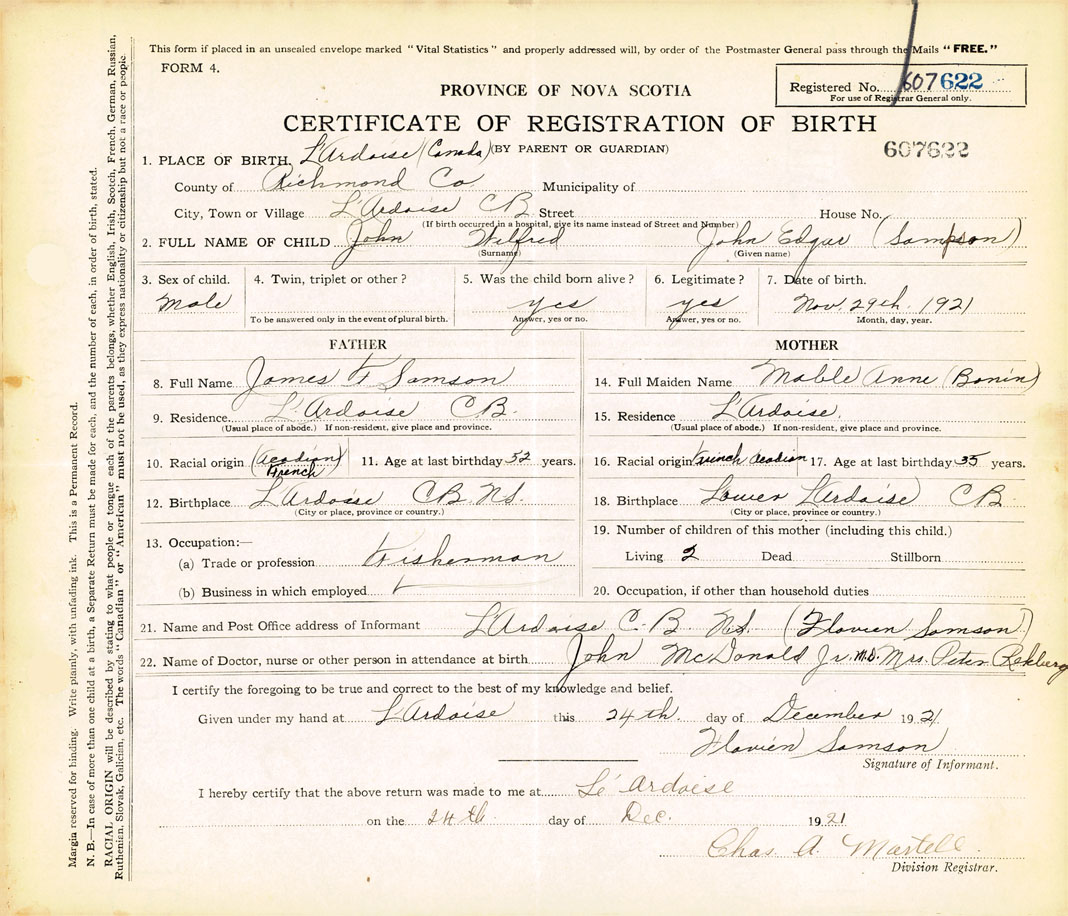 This form if placed in an unsealed envelope marked "Vital Statistics" and properly addressed will, by order of the Postmaster General pass through the Mails "FREE."
FORM 4.
Registered No. 607622
For use of Registrar General only.
PROVINCE OF NOVA SCOTIA
CERTIFICATE OF REGISTRATION OF BIRTH
607622
1. PLACE OF BIRTH. L'Ardoise (Canada) (BY PARENT OR GUARDIAN)
County of Richmond Co. Municipality of
City, Town or Village L'Ardoise CB Street House No.
(If birth occurred in a hospital, give its name instead of Street and Number)
2. FULL NAME OF CHILD John Wilfred John Edgar (Sampson)
(Surname) (Given name)
3. Sex of child. 4. Twin, triplet or other? 5. Was the child born alive? 6. Legitimate? 7. Date of birth.
Male yes yes Nov. 29th, 1921
To be answered only in the event of plural birth. Answer, yes or no. Answer, yes or no. Month, day, year.
FATHER MOTHER
8. Full Name James F Samson 14. Full Maiden Name Mable Anne (Bonin)
9. Residence L'Ardoise CB. 15. Residence L'Ardoise.
(Usual place of abode.) If non-resident, give place and province. (Usual place of abode.) If non-resident, give place and province.
10. Racial origin (Acadian) French 11. Age at last birthday 52 years. 16. Racial origin French Acadian 17. Age at last birthday 35 years.
12. Birthplace L'Ardoise CB. NS. 18. Birthplace Lower L'Ardoise CB
(City or place, province or country.) (City or place, province or country.)
19. Number of children of this mother (including this child.)
13. Occupation:—
(a) Trade or profession Fisherman Living 2 Dead Stillborn
(b) Business in which employed 20. Occupation, if other than household duties
21. Name and Post Office address of Informant L'Ardoise C. B. NS. (Flavien Samson)
22. Name of Doctor, nurse or other person in attendance at birth. John McDonald Jr. M.D. Mrs. Peter
I certify the foregoing to be true and correct to the best of my knowledge and belief.
Given under my hand at L'Ardoise this 24th. day of December 1921
Flavien Samson
Signature of Informant.
I hereby certify that the above return was made to me at Le' Ardoise
on the 24th day of Dec. 1921
Chas. A. Martell.
Division Registrar.
Margin reserved for binding. Write plainly, with unfading ink. This is a Permanent Record.
N. B.—In case of more than one child at a birth, a Separate Return must be made for each, and the number of each, in order of birth, stated.
RACIAL ORIGIN will be described by stating to what people or tongue each of the parents belongs, whether English, Irish, Scotch, French, German, Russian,
Ruthenian, Slovak, Galician, etc. The words "Canadian" or "American" must not be used, as they express nationality or citizenship but not a race or people.